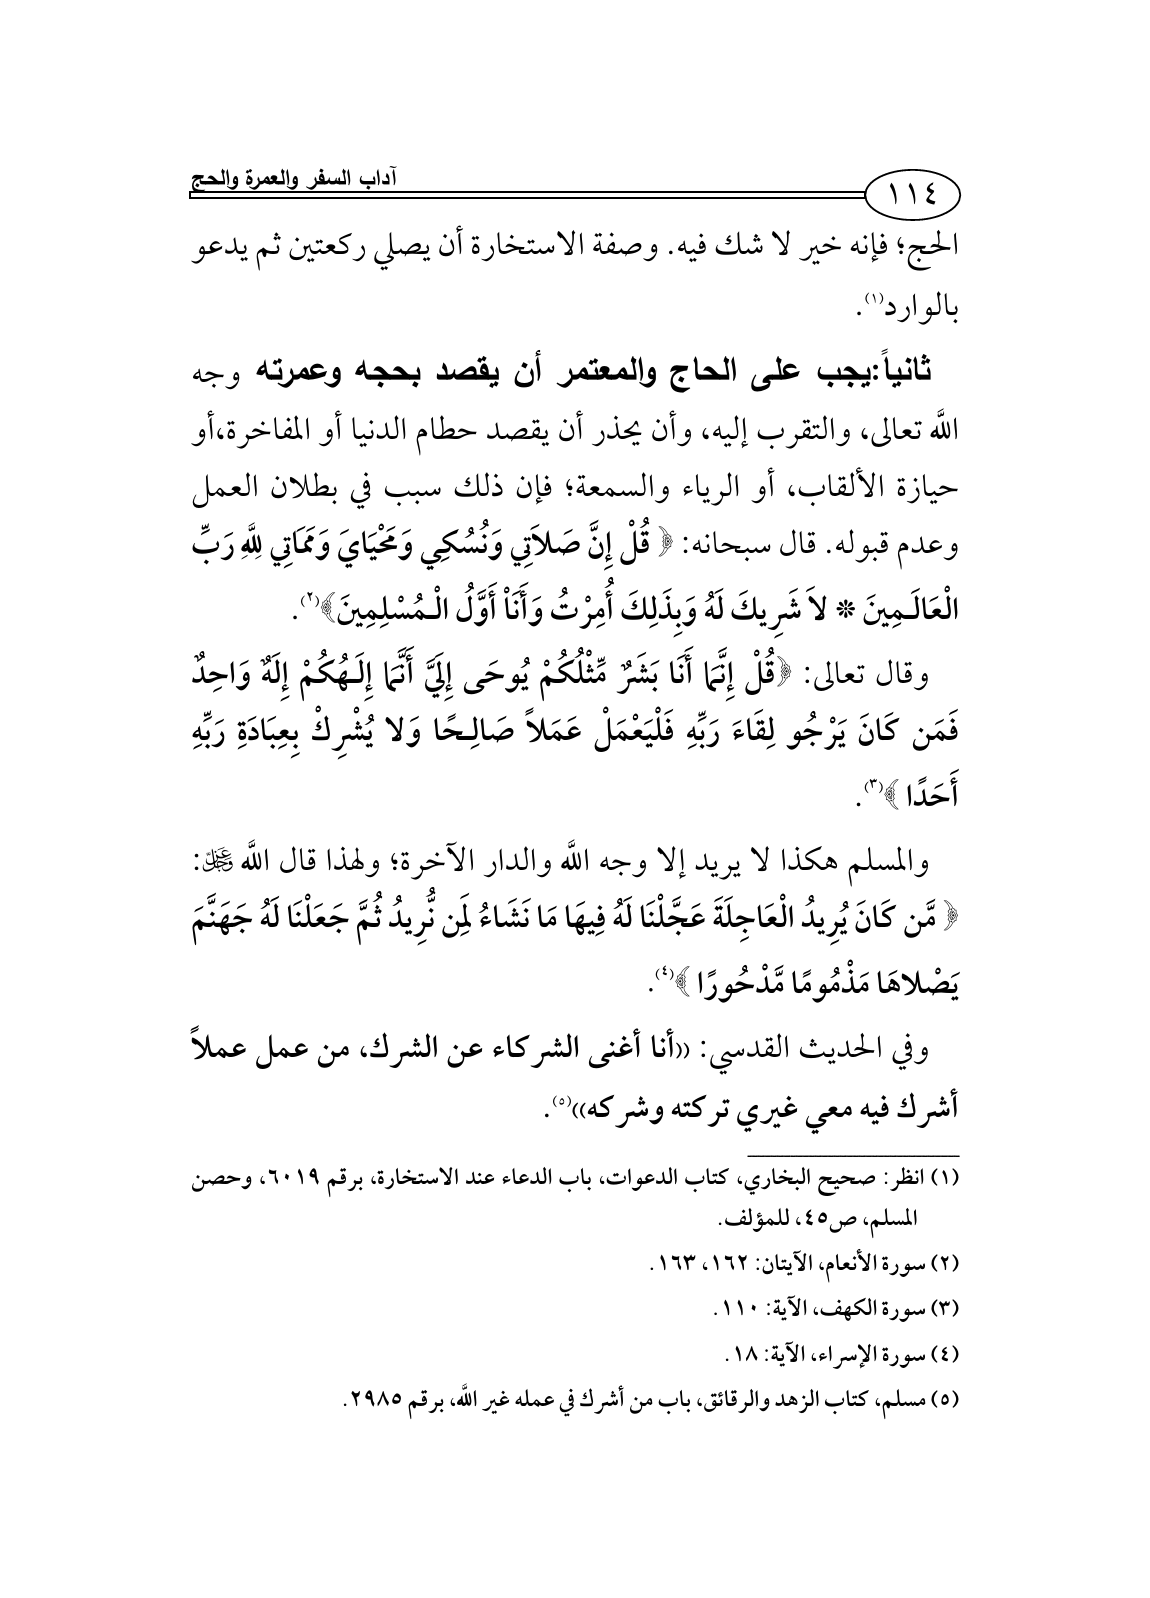 ١١٤
آداب السفر والعمرة والحج
الحج؛ فإنه خير لا شك فيه. وصفة الاستخارة أن يصلي ركعتين ثم يدعو
بالوارد(١).
ثانياً:يجب على الحاج والمعتمر أن يقصد بحجه وعمرته وجه
الله تعالى، والتقرب إليه، وأن يحذر أن يقصد حطام الدنيا أو المفاخرة،أو
حيازة الألقاب، أو الرياء والسمعة؛ فإن ذلك سبب في بطلان العمل
وعدم قبوله. قال سبحانه: ﴿ قُلْ إِنَّ صَلاَتِي وَنُسُكِي وَمَحْيَايَ وَمَمَاتِي لِلَّهِ رَبِّ
الْعَالَـمِينَ * لاَ شَرِيكَ لَهُ وَبِذَلِكَ أُمِرْتُ وَأَنَاْ أَوَّلُ الْـمُسْلِمِينَ﴾(٢).
وقال تعالى: ﴿قُلْ إِنَّمَا أَنَا بَشَرٌ مِّثْلُكُمْ يُوحَى إِلَيَّ أَنَّمَا إِلَـهُكُمْ إِلَهٌ وَاحِدٌ
فَمَن كَانَ يَرْجُو لِقَاءَ رَبِّهِ فَلْيَعْمَلْ عَمَلاً صَالِـحًا وَلا يُشْرِكْ بِعِبَادَةِ رَبِّهِ
أَحَدًا ﴾(٣).
والمسلم هكذا لا يريد إلا وجه الله والدار الآخرة؛ ولهذا قال الله عز وجل:
﴿ مَّن كَانَ يُرِيدُ الْعَاجِلَةَ عَجَّلْنَا لَهُ فِيهَا مَا نَشَاءُ لِمَن نُّرِيدُ ثُمَّ جَعَلْنَا لَهُ جَهَنَّمَ
يَصْلاهَا مَذْمُومًا مَّدْحُورًا ﴾(٤).
وفي الحديث القدسي: ((أنا أغنى الشركاء عن الشرك، من عمل عملاً
أشرك فيه معي غيري تركته وشركه))(٥).
(١) انظر: صحيح البخاري، كتاب الدعوات، باب الدعاء عند الاستخارة، برقم ٦٠١٩، وحصن
المسلم، ص٤٥، للمؤلف.
(٢) سورة الأنعام، الآيتان: ١٦٢، ١٦٣.
(٣) سورة الكهف، الآية: ١١٠.
(٤) سورة الإسراء، الآية: ١٨.
(٥) مسلم، كتاب الزهد والرقائق، باب من أشرك في عمله غير الله، برقم ٢٩٨٥.